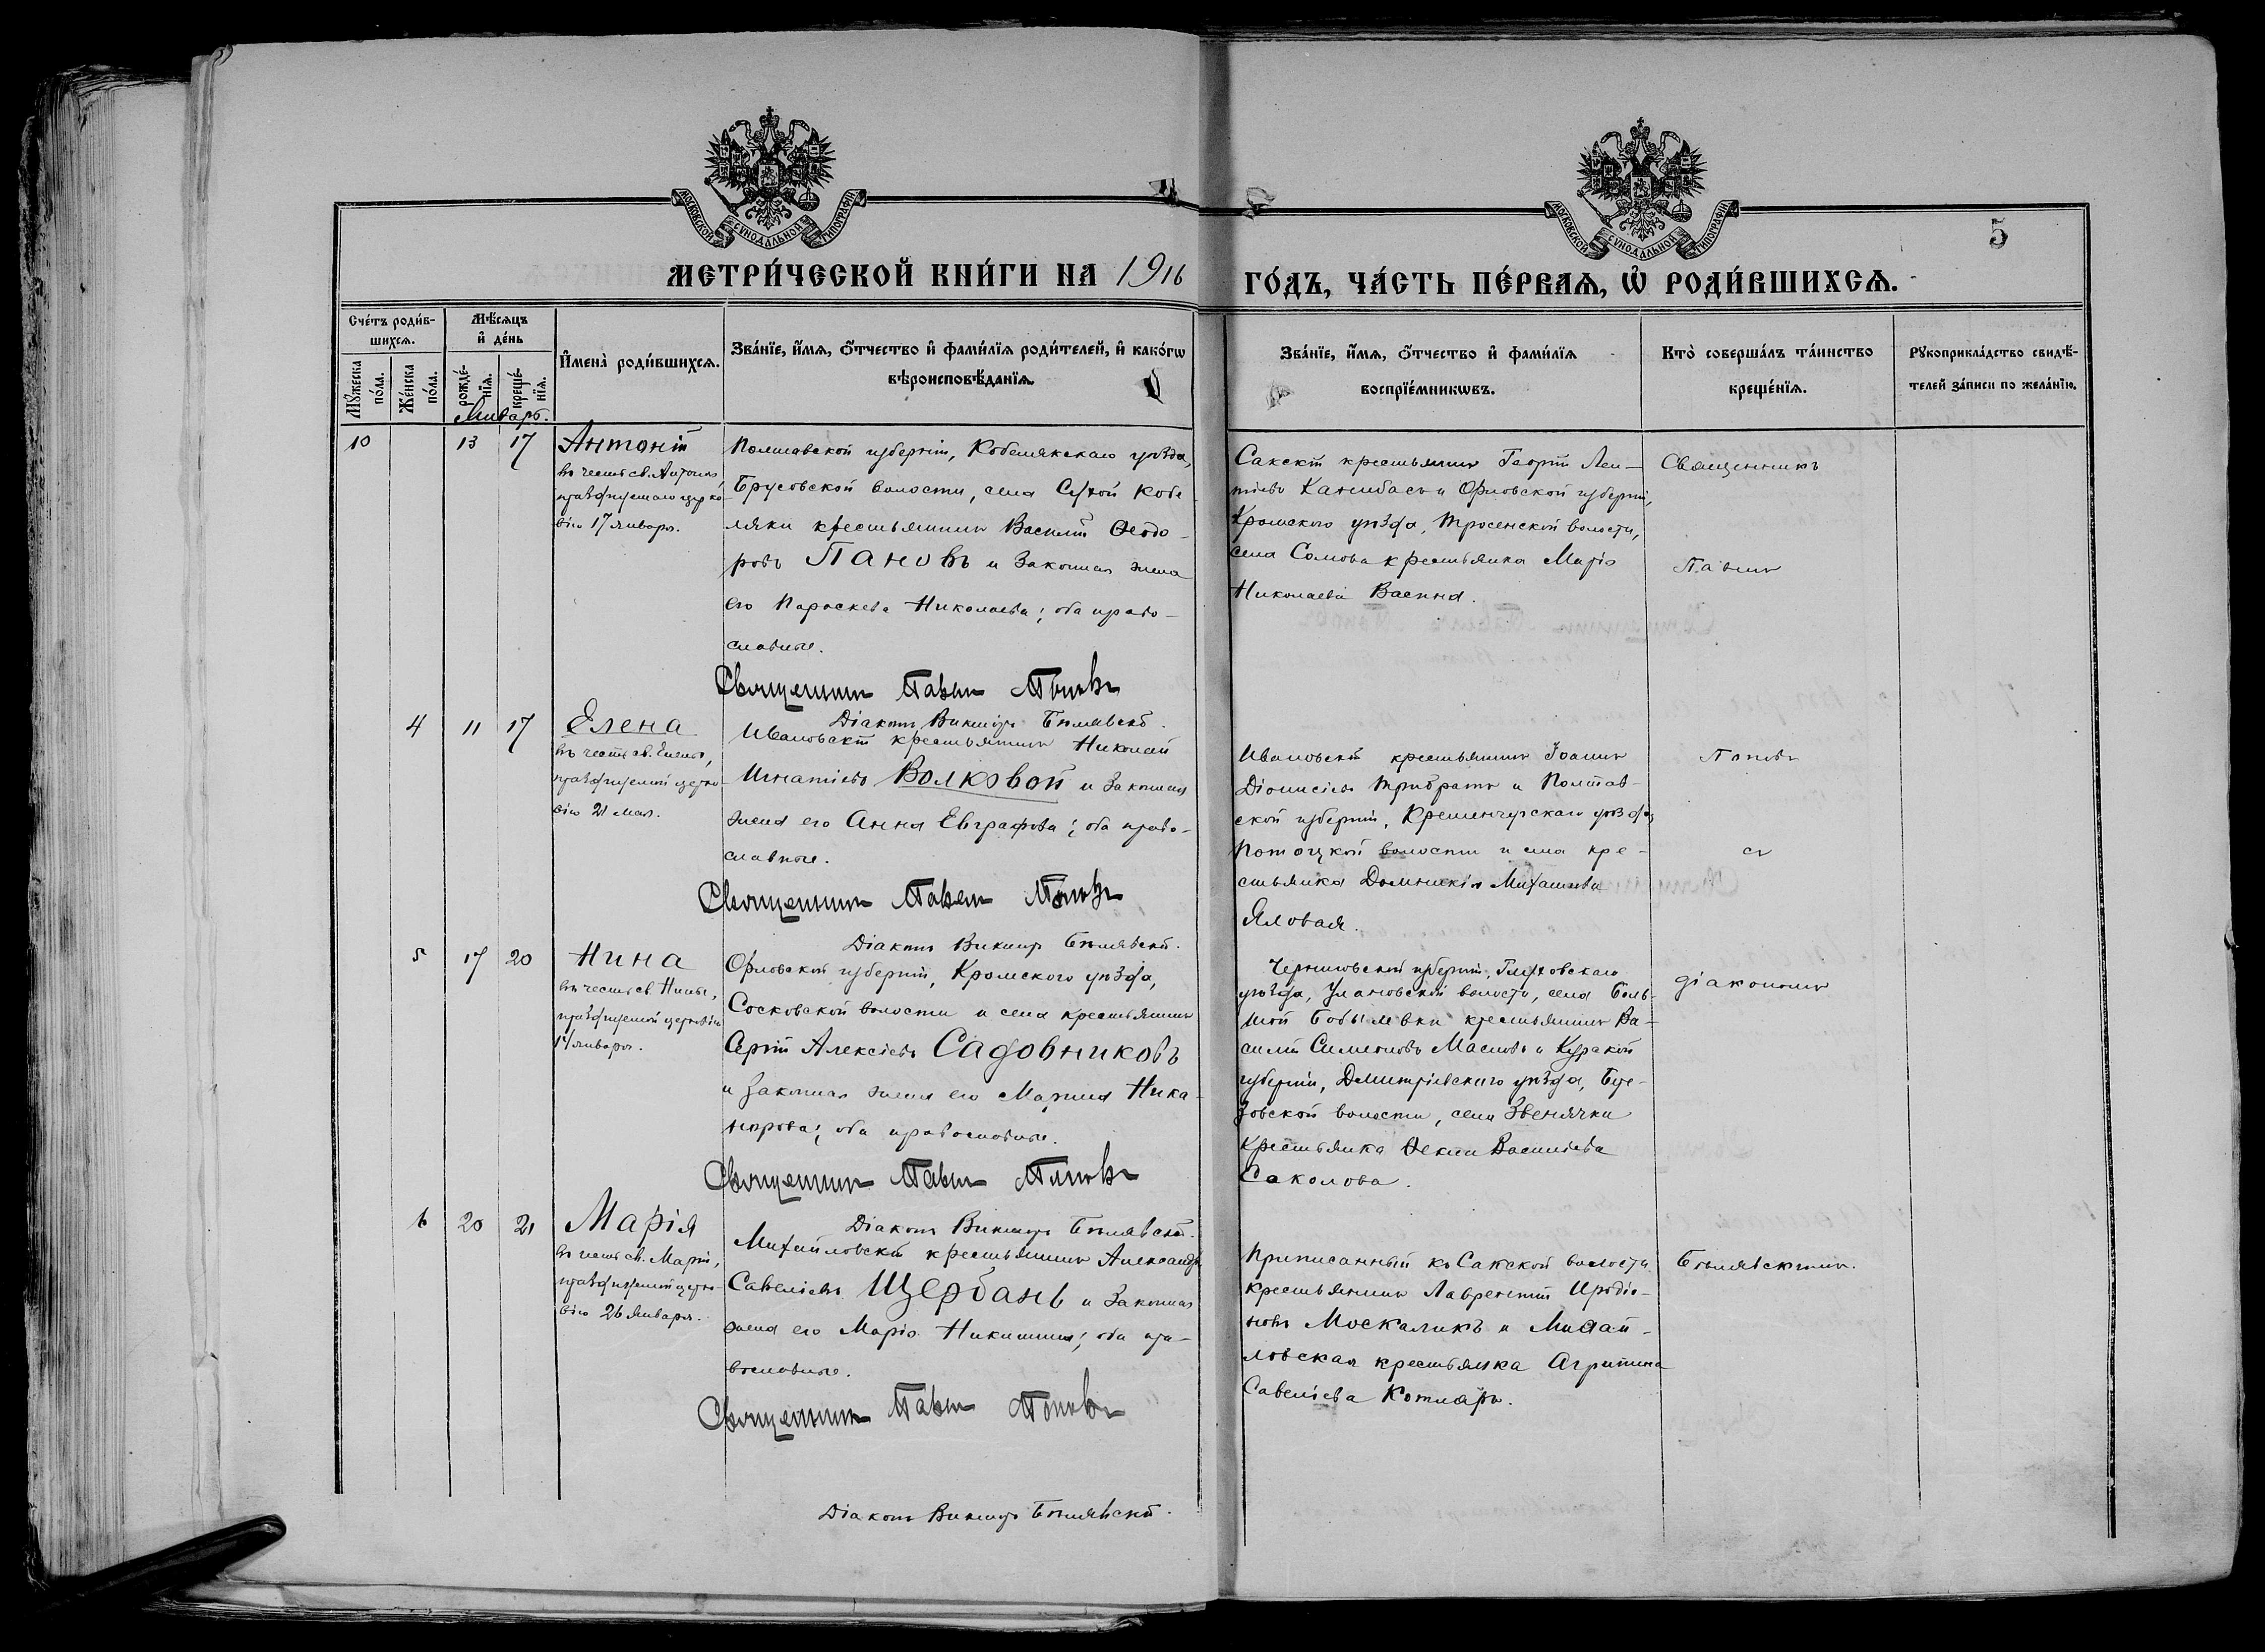 МОСКОВСКОЙ СУНОДАЛЬНОЙ ТИПОГРАФІИ
МОСКОВСКОЙ СУНОДАЛЬНОЙ ТИПОГРАФІИ
5
МЕТРИ́ЧЕСКОЙ КНИ́ГИ НА 1916
ГО́ДЪ, ЧА́СТЬ ПЕ́РВАѦ, Ѽ РОДИ́ВШИХСѦ.
Сче́тъ роди́в-
шихсѧ.
Мꙋжеска по́ла.
Же́нска по́ла.
Мѣ́сѧцъ
и҆ де́нь
рожде́-
нїѧ.
креще́-
нїѧ.
И҆мена̀ роди́вшихсѧ.
Зва́нїе, и҆́мѧ, ѻ҆́тчество и҆ фами́лїѧ роди́телей, и҆ како́гѡ
вѣроисповѣ́данїѧ.
Зва́нїе, и҆́мѧ, ѻ҆́тчество и҆ фами́лїѧ
воспрїе́мникѡвъ.
Кто̀ соверша́лъ та́инство
креще́нїѧ.
Рꙋкоприкла́дство свидѣ́-
телей за́писи по жела́нїю.
Январь.
10 13 17 Антоній
въ честь св. Антонія,
празднуемаго церко-
вію 17 января.
Полтавской губерніи, Кобелякскаго уѣзда,
Брусовской волости, села Сухой Кобе-
ляки крестьянинъ Василій Ѳеодо-
ровъ Пановъ и законная жена
его Параскева Николаева; оба право-
славные.
Священникъ Павелъ Поповъ
Діаконъ Викторъ Бѣлявскій.
Сакскій крестьянинъ Георгій Леон-
тіевъ и Орловской губерніи,
Кромскаго уѣзда, Тросенской волости,
села Сомова крестьянка Марія
Николаева Васина.
Священникъ
Павелъ
4 11 17 Елена
въ честь св. Елены,
празднуемой церко-
вію 21 мая.
Ивановскій крестьянинъ Николай
Игнатіевъ Волковой и законная
жена его Анна Евграфова; оба право-
славные.
Священникъ Павелъ Поповъ
Діаконъ Викторъ Бѣлявскій.
Ивановскій крестьянинъ Іоаннъ
Діонисіевъ Трибратъ и Полтав-
ской губерніи, Кременчугскаго уѣзда,
Потоцкой волости и села кре-
стьянка Домникія Михаилова
Яловая.
Поповъ
съ
5 17 20 Нина
въ честь св. Нины,
празднуемой церковію
14 января.
Орловской губерніи, Кромского уѣзда,
Сосковской волости и села крестьянинъ
Сергій Алексіевъ Садовниковъ
и законная жена его Марина Ника-
норова; оба православные.
Священникъ Павелъ Поповъ
Діаконъ Викторъ Бѣлявскій.
Черниговской губерніи, Глуховскаго
уѣзда, Улановской волости, села Боль-
шой Бобылевки крестьянинъ Ва-
силій Симеоновъ Масловъ и Курской
губерніи, Дмитріевскаго уѣзда,
волости, села Звенячки
крестьянка Ѳекла Васильева
Саколова.
діакономъ
6 20 21 Марія
въ честь св. Маріи,
празднуемой церко-
вію 26 января.
Михайловскій крестьянинъ Александръ
Савеліевъ Щербань и законная
жена его Марія Никитина; оба пра-
вославные.
Священникъ Павелъ Поповъ
Діаконъ Викторъ Бѣлявскій.
Приписанный къ Сакской волости
крестьянинъ Лаврентій Иродіо-
новъ Москаликъ и Михай-
ловская крестьянка Агрипина
Савеліева Котляръ.
Бѣлявскимъ.